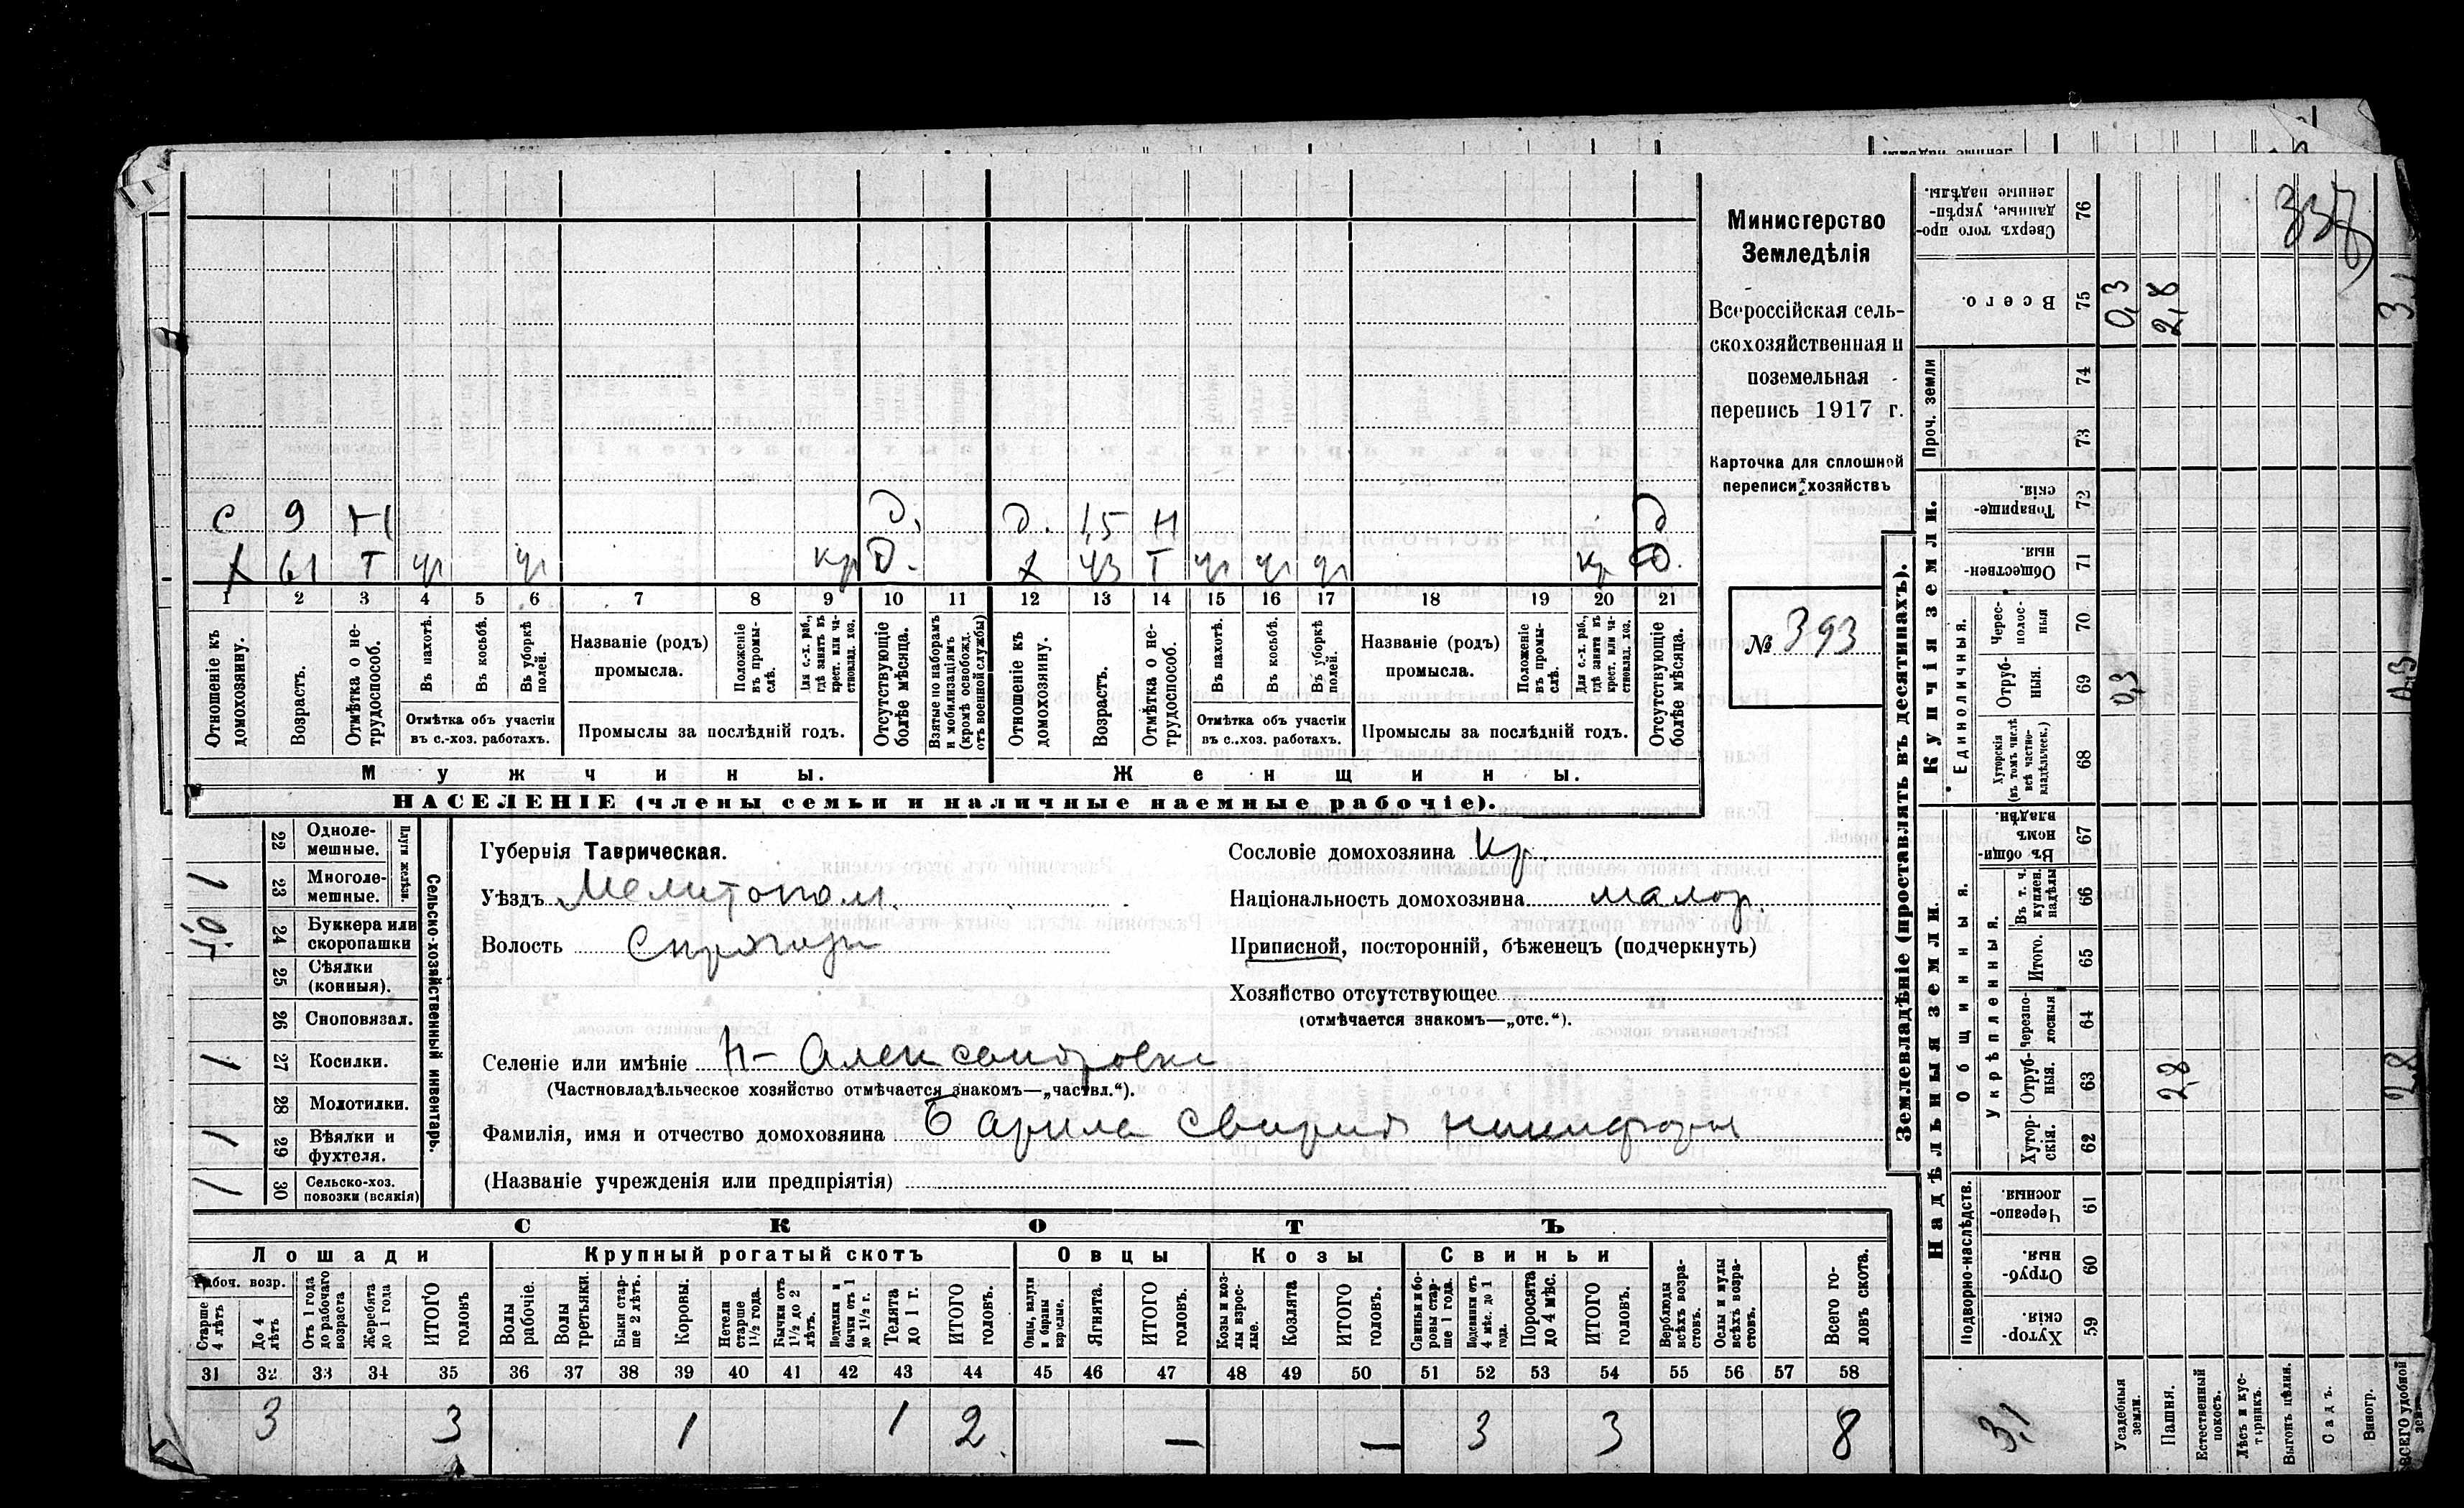 с 9 Н д. д. 15 н д
х 61 Т уч уч кр д. х 43 Т уч уч уч кр д.
1 2 3 4 5 6 7 8 9 10 11 12 13 14 15 16 17 18 19 20 21
Отношеніе къ домохозяину.
Возрастъ.
Отмѣтка о нетрудоспособ.
Въ пахотѣ.
Въ косьбѣ.
Въ уборкѣ полей.
Отмѣтка объ участіи
въ с.-хоз. работахъ.
Названіе (родъ)
промысла.
Положеніе въ промыслѣ.
Для с.-х. раб., гдѣ занятъ въ крест. или частновлад. хоз.
Промыслы за послѣдній годъ.
Отсутствующіе болѣе мѣсяца.
Взятые по наборамъ и мобилизаціямъ (кромѣ освобожд. отъ военной службы)
Отношеніе къ домохозяину.
Возрастъ.
Отмѣтка о нетрудоспособ.
Въ пахотѣ.
Въ косьбѣ.
Въ уборкѣ полей.
Отмѣтка объ участіи
въ с.-хоз. работахъ.
Названіе (родъ)
промысла.
Положеніе въ промыслѣ.
Для с.-х. раб., гдѣ занята въ крест. или частновлад. хоз.
Промыслы за послѣдній годъ.
Отсутствующіе болѣе мѣсяца.
Мужчины.
Женщины.
НАСЕЛЕНІЕ (члены семьи и наличные наемные рабочіе).
Министерство
Земледѣлія
Всероссійская сель-
скохозяйственная и
поземельная
перепись 1917 г.
Карточка для сплошной
переписи хозяйствъ
№ 393
Сельско-хозяйственный инвентарь.
Плуги желѣзн.
22 Одноле-
мешные.
1 23 Многоле-
мешные.
24 Буккера или
скоропашки
25 Сѣялки
(конныя).
26 Сноповязал.
1 27 Косилки.
28 Молотилки.
1 29 Вѣялки и
фухтеля.
1 30 Сельско-хоз.
повозки (всякія)
Губернія Таврическая.
Уѣздъ Мелитопол.
Волость
Сословіе домохозяина Кр.
Національность домохозяина малор.
Приписной, посторонній, бѣженецъ (подчеркнуть)
Хозяйство отсутствующее
(отмѣчается знакомъ—„отс.“).
Селеніе или имѣніе Н-Александровка
(Частновладѣльческое хозяйство отмѣчается знакомъ—„частвл.“).
Фамилія, имя и отчество домохозяина Барила Свирид Никифоров
(Названіе учрежденія или предпріятія)
СКОТЪ
Лошади
Крупный рогатый скотъ
Овцы
Козы
Свиньи
Рабоч. возр.
Старше 4 лѣтъ
До 4 лѣтъ
Отъ 1 года до рабочаго возраста
Жеребята до 1 года
ИТОГО головъ
Волы рабочіе.
Волы третьяки.
Быки старше 2 лѣтъ.
Коровы.
Нетели старше 1 1/2 года.
Бычки отъ 1 1/2 до 2 лѣтъ.
Подтелки и бычки отъ 1 до 1 1/2 г.
Телята до 1 г.
ИТОГО головъ.
Овцы, валухи и бараны взрослые.
Ягнята.
ИТОГО головъ.
Козы и козлы взрослые.
Козлята
ИТОГО головъ.
Свиньи и боровы старше 1 года.
Подсвинки отъ 4 мѣс. до 1 года.
Поросята до 4 мѣс.
ИТОГО головъ.
Верблюды всѣхъ возрастовъ.
Ослы и мулы всѣхъ возрастовъ.
Всего головъ скота.
31 32 33 34 35 36 37 38 39 40 41 42 43 44 45 46 47 48 49 50 51 52 53 54 55 56 57 58
3 3 1 1 2 — — 3 3 8
Землевладѣніе (проставлять въ десятинахъ).
Купчія земли.
Надѣльныя земли.
Сверхъ того проданные, укрѣпленные надѣлы. 76
Всего. 75 0,3 2,8
Проч. земли
74
73
Товарищескія. 72
Общественныя. 71
Единоличныя.
Черезполосныя 70
Отрубныя. 69 0,3 0,3
Хуторскія (въ томъ числѣ всѣ частновладѣльческ.) 68
Общинныя.
Въ общинномъ владѣн. 67
Укрѣпленныя.
Въ т. ч. куплен. надѣлы 66
Итого. 65
Черезполосныя 64
Отрубныя. 63 2,8 2,8
Хуторскія. 62
Подворно-наслѣдств.
Черезполосныя. 61
Отрубныя. 60
Хуторскія 59
3,1
Усадебныя земли.
Пашня.
Естественный покосъ.
Лѣсъ и кустарникъ.
Выгонъ цѣлин.
Садъ.
Виногр.
ВСЕГО удобной